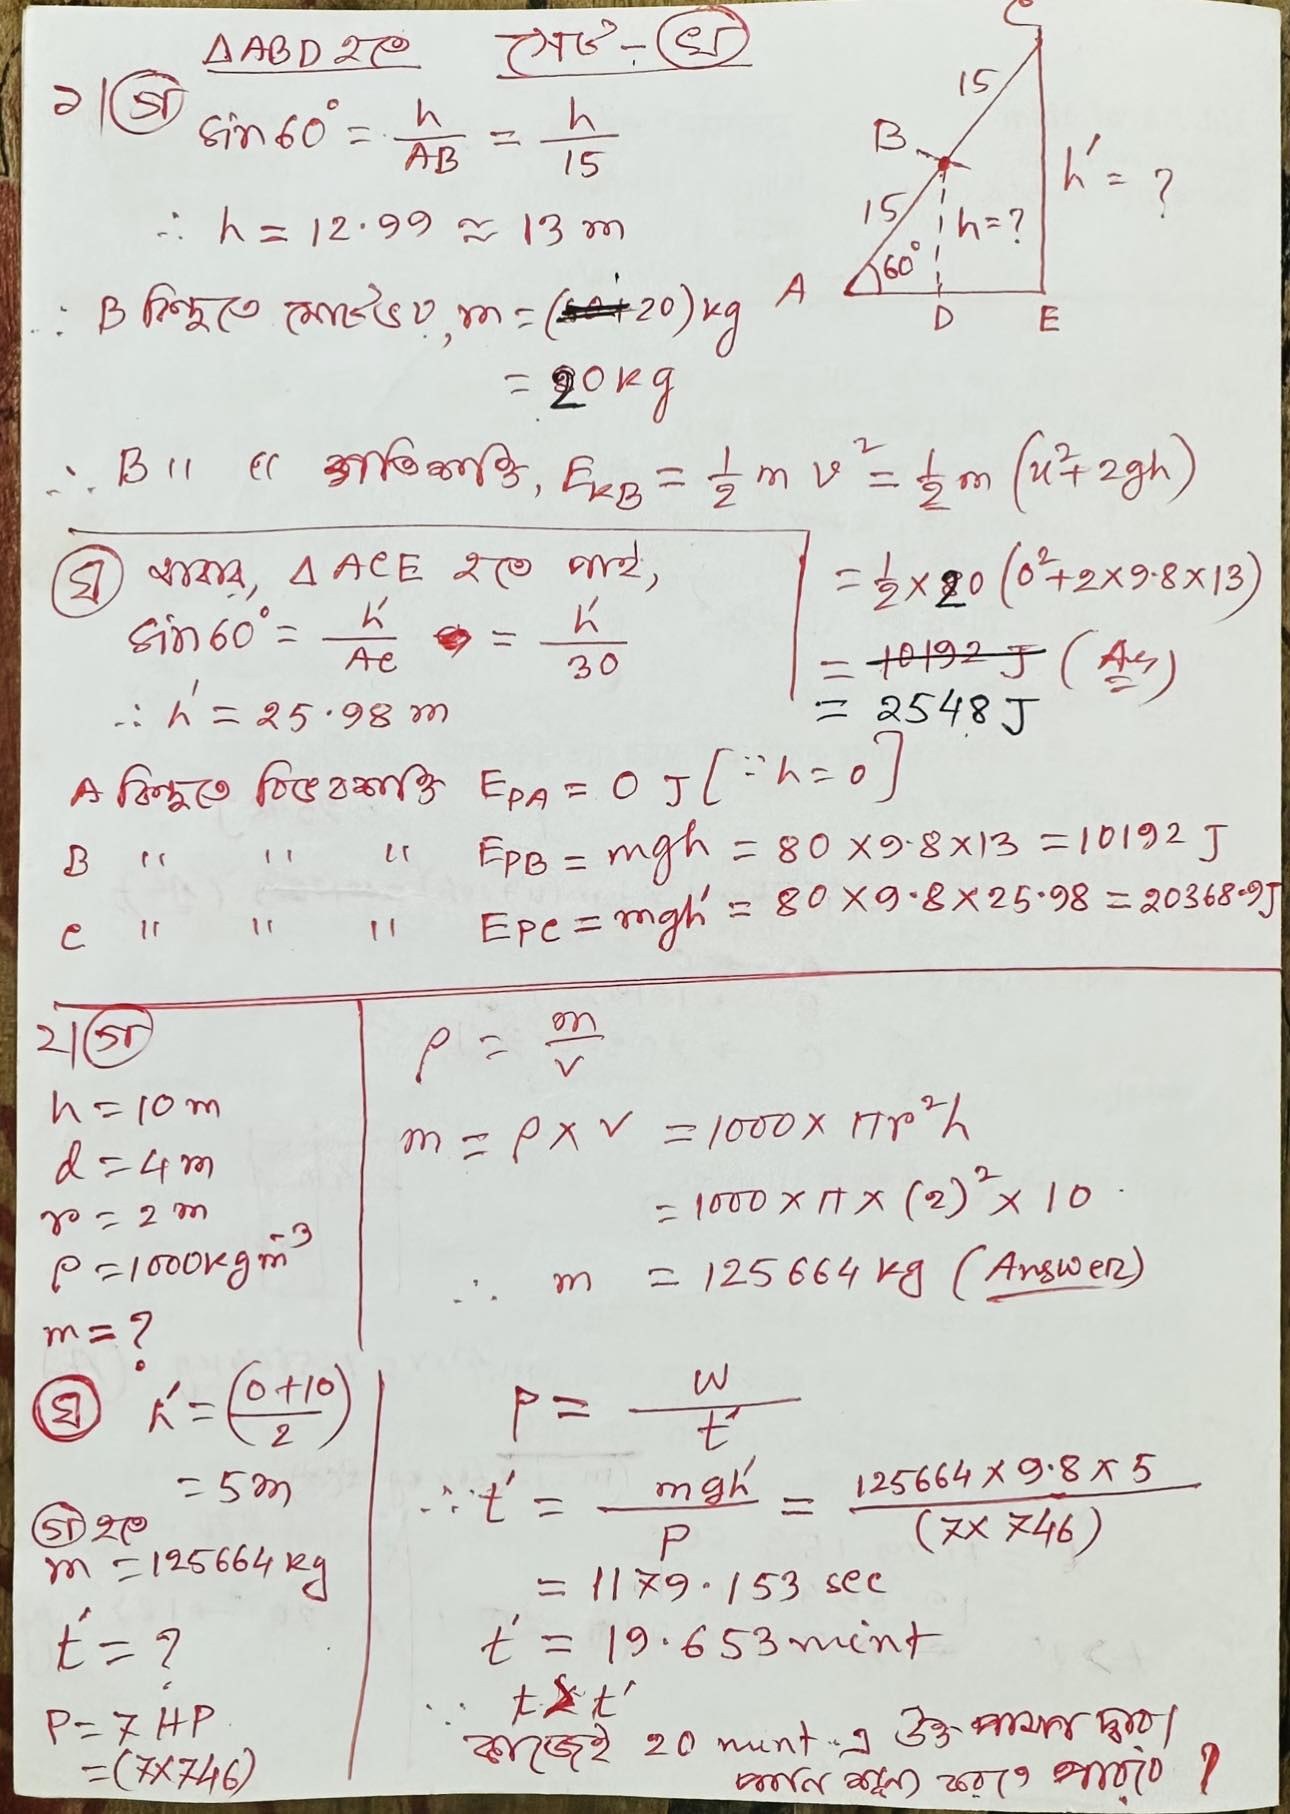 ΔABD হতে সেট - (খ)
১| (গ) sin60° = h/AB = h/15
∴ h = 12.99 ≈ 13 m
∴ B বিন্দুতে মোট ভর, m = (20) kg
= 20 kg
∴ B " " গতিশক্তি, E_KB = 1/2 m v² = 1/2 m (u² + 2gh)
= 1/2 × 20 (0² + 2×9.8×13)
= 10192 J (Ans)
= 2548 J
C
15
B
h' = ?
15
h = ?
60°
A
D E
(ঘ) আবার, Δ ACE হতে পাই,
sin60° = h'/AC = h'/30
∴ h' = 25.98 m
A বিন্দুতে বিভবশক্তি E_PA = 0 J [∵ h = 0]
B " " " E_PB = mgh = 80 × 9.8 × 13 = 10192 J
C " " " E_PC = mgh' = 80 × 9.8 × 25.98 = 20368.9 J
২| (গ)
h = 10 m
d = 4 m
r = 2 m
ρ = 1000 kgm⁻³
m = ?
ρ = m/v
m = ρ × v = 1000 × πr²h
= 1000 × π × (2)² × 10
∴ m = 125664 kg (Answer)
(ঘ) h' = (0+10/2)
= 5m
(গ) হতে
m = 125664 kg
t' = ?
P = 7 HP
= (7×746)
P = W/t'
∴ t' = mgh'/P = 125664 × 9.8 × 5/(7 × 746)
= 1179.153 sec
t' = 19.653 mint
∴ t t'
কাজেই 20 mint এ উক্ত পাম্প দ্বারা
পানি শূন্য করতে পারবে ?